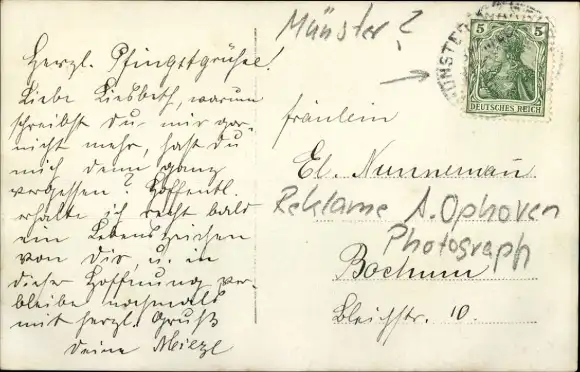 Herzl. Pfingstgrüße.
Liebe Liesbeth, warum
schreibst Du mir gar
nicht mehr, hast Du
mich denn ganz
vergessen? Hoffentl.
erhalte ich recht bald
ein Lebenszeichen
von Dir u. in
dieser Hoffnung ver-
bleibe nochmals
mit herzl. Gruß
Deine Miezl
Münster?
MÜNSTER
5 5
DEUTSCHES REICH
Fräulein
El. Nunnemann
Reklame A. Ophoven
Photograph
Bochum
Bleichstr. 10.